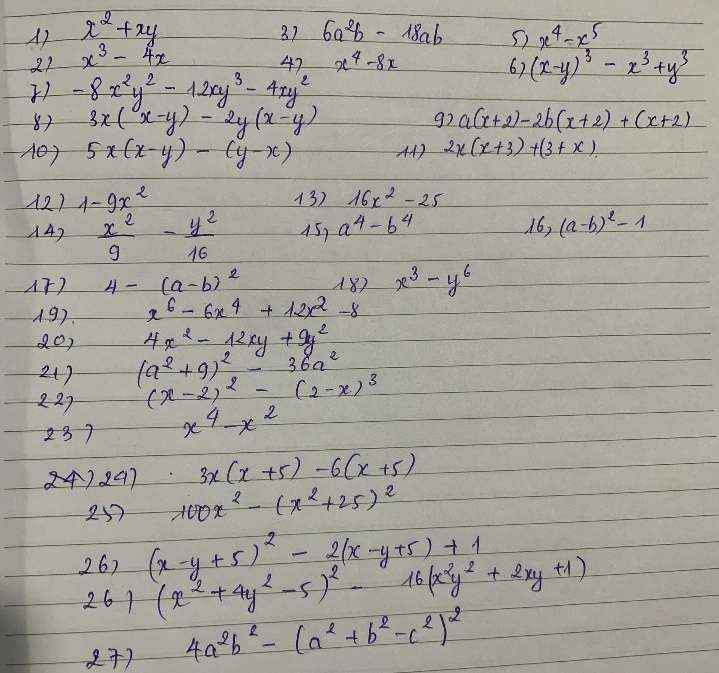 1) x² + xy 3) 6a²b - 18ab 5) x⁴ - x⁵
2) x³ - 4x 4) x⁴ - 8x 6) (x-y)³ - x³ + y³
7) -8x²y² - 12xy³ - 4xy²
8) 3x(x-y) - 2y(x-y) 9) a(x+2) - 2b(x+2) + (x+2)
10) 5x(x-y) - (y-x) 11) 2x(x+3) + (3+x)
12) 1 - 9x² 13) 16x² - 25
14) x²/9 - y²/16 15) a⁴ - b⁴ 16) (a-b)² - 1
17) 4 - (a-b)² 18) x³ - y⁶
19) x⁶ - 6x⁴ + 12x² - 8
20) 4x² - 12xy + 9y²
21) (a² + 9)² - 36a²
22) (x-2)² - (2-x)³
23) x⁴ - x²
24) 24) 3x(x+5) - 6(x+5)
25) 100x² - (x² + 25)²
26) (x-y+5)² - 2(x-y+5) + 1
26) (x² + 4y² - 5)² - 16(x²y² + 2xy + 1)
27) 4a²b² - (a² + b² - c²)²